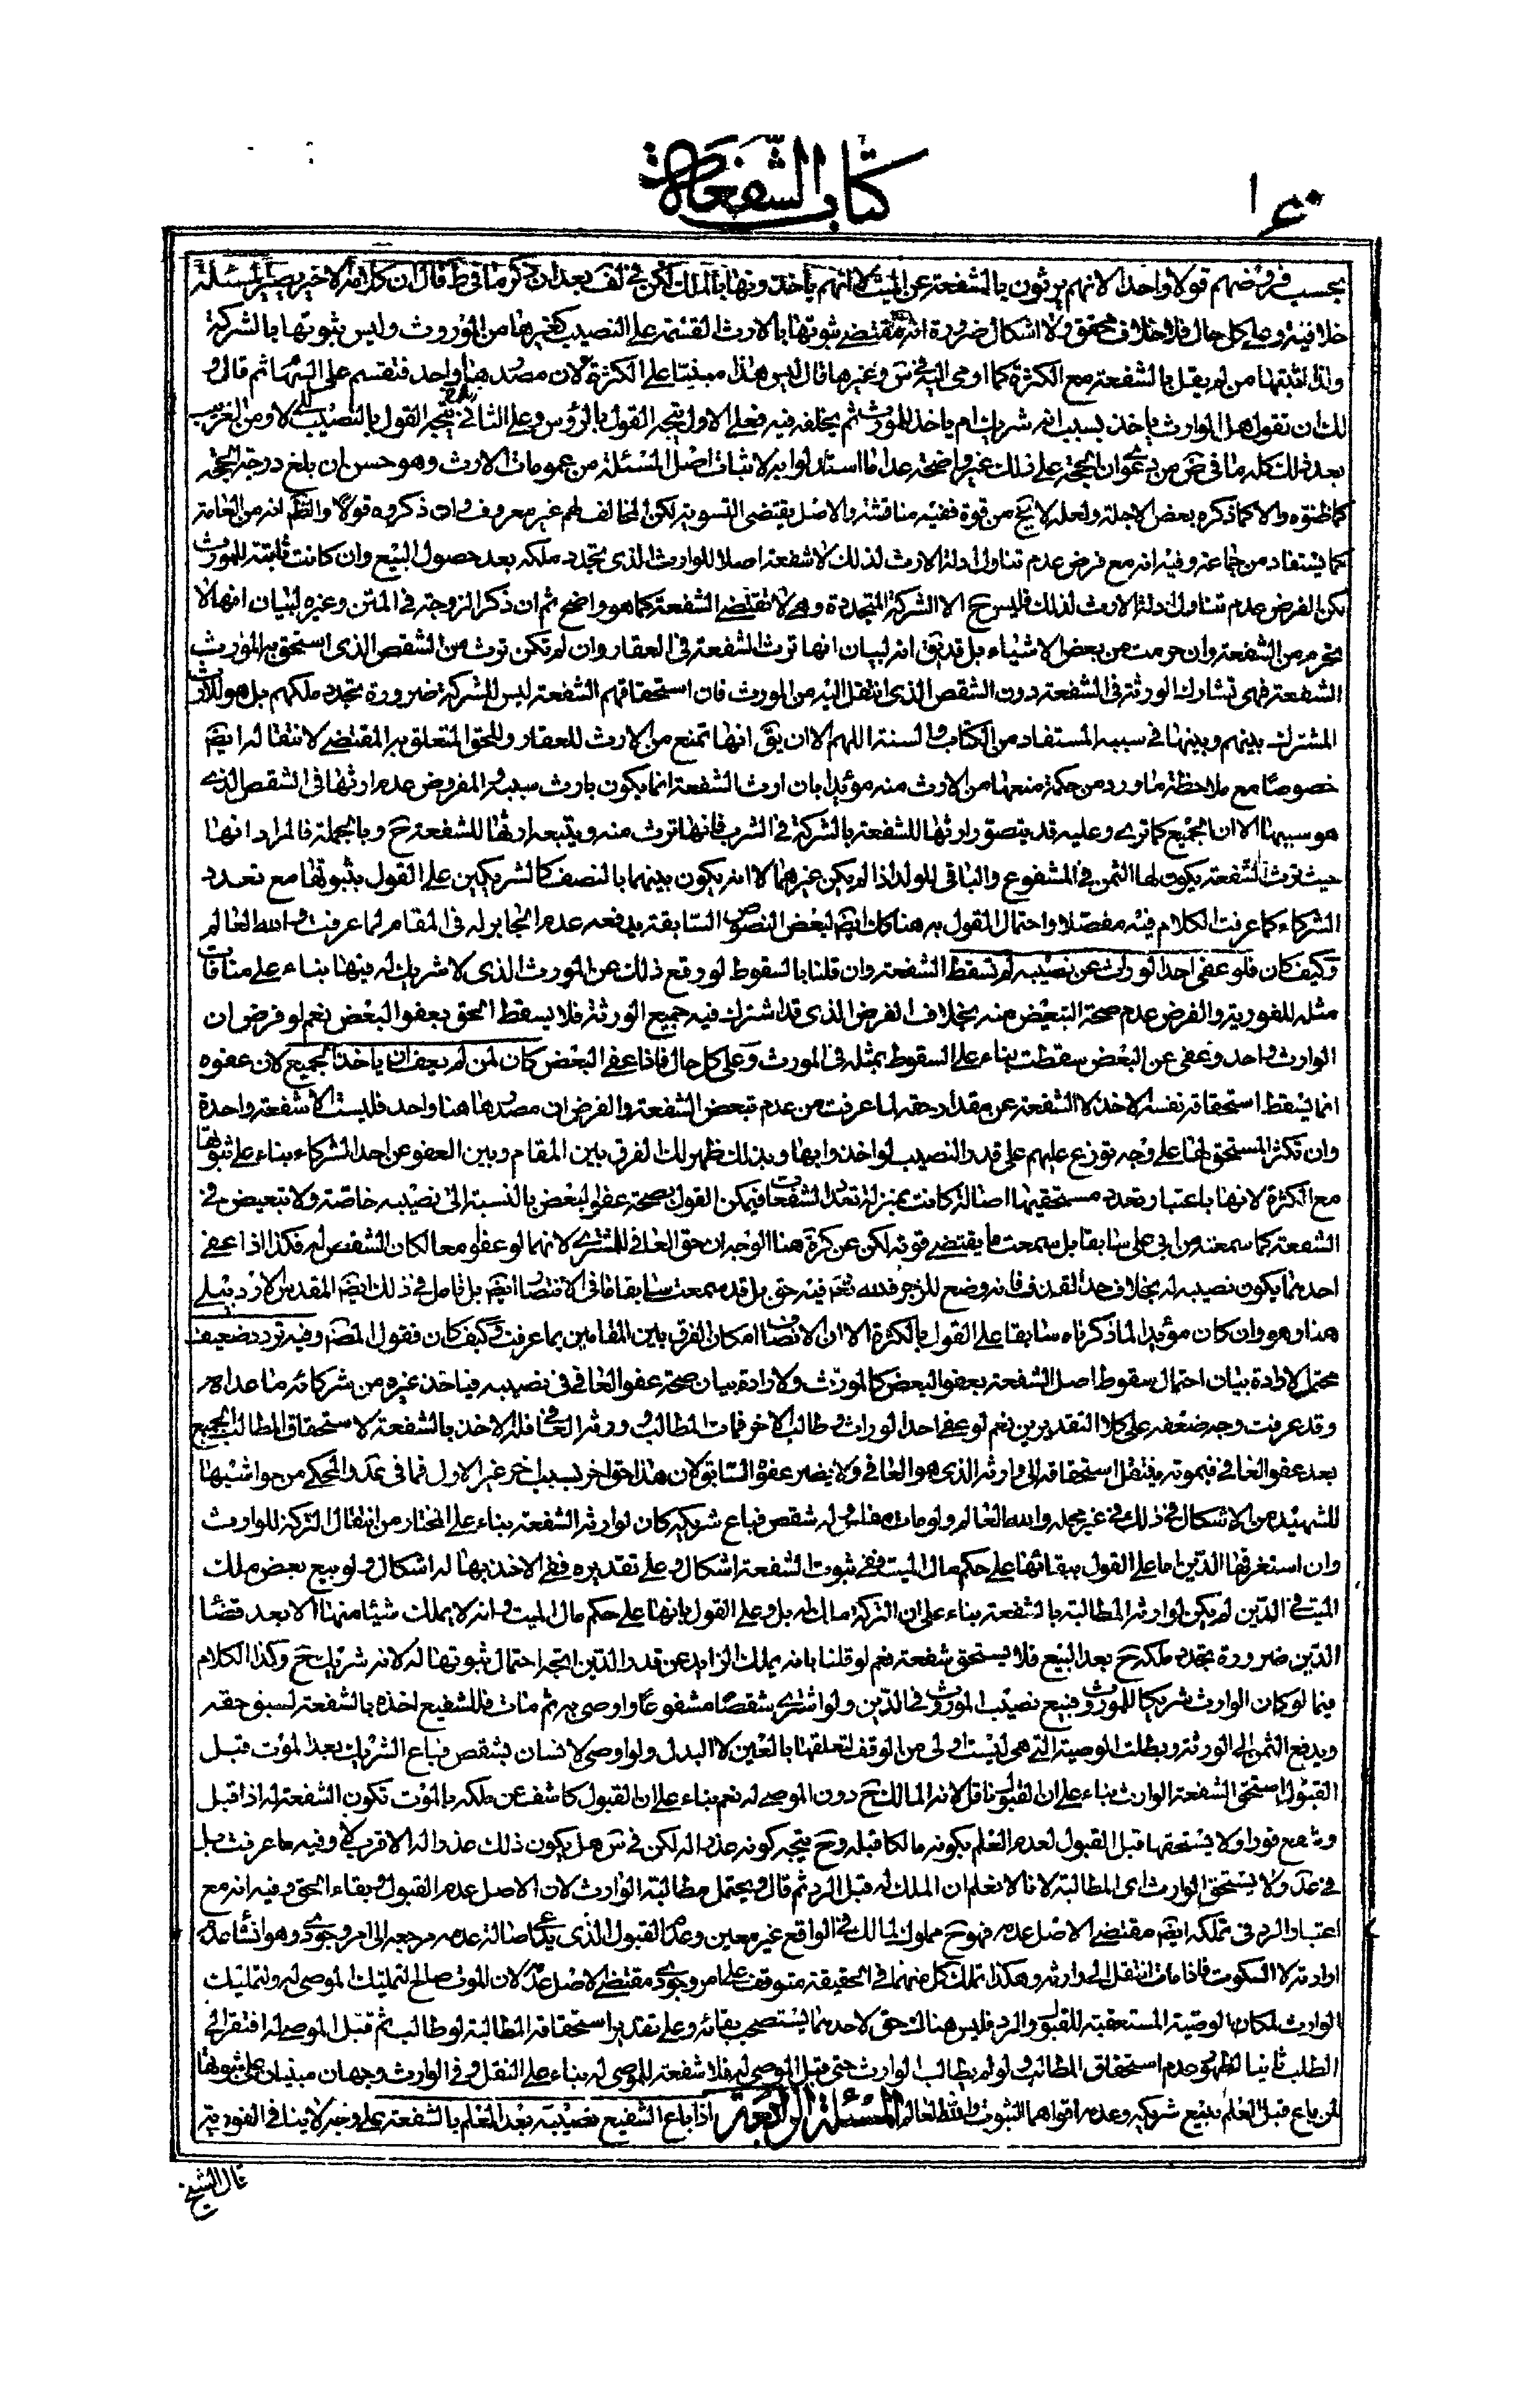 كتاب الشفعة
بحسب فروضهم قولا واحدا لانهم يرثون بالشفعة عن الميت لا انهم ياخذونها بالملك لكن في لف بعد ان ذكر ما في ط قال ان كلامه الاخير يصير المسئلة
خلافية وعلى كل حال فلا خلاف محقق ولا اشكال ضرورة انه مقتضى ثبوتها بالارث القسمة على النصيب كغيرها من الموروث وليس ثبوتها بالشركة
ولذا اثبتها من لم يقل بالشفعة مع الكثرة كما اومى اليه في س وغيرها قال ليس هذا مبنيا على الكثرة لان مصدرها واحد فتقسم على السهام ثم قال و
لك ان تقول هل الوارث ياخذ بسبب انه شريك ام ياخذ للمورث ثم يخلفه فيه فعلى الاول يتجه القول بالرؤس وعلى الثاني يتجه القول بالنصيب الاول ومن الغريب
بعد ذلك كله ما في ض من دعوى ان الحجة على ذلك غير واضحة عدا ما استدلوا به لاثبات اصل المسئلة من عمومات الارث وهو حسن ان بلغ درجة الحجة
كما ظنوه والا كما ذكره بعض الاجلة ولعله لا يخ من قوة ففيه مناقشة والاصل يقتضي التسوية لكن المخالف لهم غير معروف وان ذكروه قولا والظم انه من العامة
كما يستفاد من جماعة وفيه انه مع فرض عدم تناول ادلة الارث لذلك لا شفعة اصلا للوارث الذي تجدد ملكه بعد حصول البيع وان كانت ثابتة للمورث
لكن الفرض عدم تناول ادلة الارث لذلك فليس ح الا الشركة المتجددة وهي لا تقتضي الشفعة كما هو واضح ثم ان ذكر الزوجة في المتن وغيره لبيان انها لا
تحرم من الشفعة وان حرمت من بعض الاشياء بل قد يق انه لبيان انها ترث الشفعة في العقار وان لم تكن ترث من الشقص الذي استحق به المورث
الشفعة فهي تشارك الورثة في الشفعة دون الشقص الذي انتقل اليه من المورث فان استحقاقهم الشفعة ليس للشركة ضرورة تجدد ملكهم بل هو للارث
المشترك بينهم وبينها في سببه المستفاد من الكتاب والسنة اللهم الا ان يق انها تمنع من الارث للعقار وللحق المتعلق به المقتضي لانتقاله ايضم
خصوصا مع ملاحظة ما ورد من حكمة منعها من الارث منه مؤيدا بان ارث الشفعة انما يكون بارث سببه والمفروض عدم ارثها في الشقص الذي
هو سببها الا ان الجميع كما ترى وعليه قد يتصور ارثها للشفعة بالشركة في الشرب فانها ترث منه ويتبعه ارثها للشفعة ح وبالجملة فالمراد انها
حيث ترث الشفعة يكون لها الثمن في المشفوع والباقي للولد اذا لم يكن غيرهما لا انه يكون بينهما بالنصف كالشريكين على القول بثبوتها مع تعدد
الشركاء كما عرفت الكلام فيه مفصلا واحتمال القول به هناك ايضم لبعض النصوص السابقة يدفعه عدم الجابر له في المقام لما عرفت والله العالم
وكيف كان فلو عفى احد الوراث عن نصيبه لم تسقط الشفعة وان قلنا بالسقوط لو وقع ذلك عن المورث الذي لا شريك له فيها بناء على منافات
مثله للفورية والفرض عدم صحة التبعيض منه بخلاف الفرض الذي قد اشترك فيه جميع الورثة فلا يسقط الحق بعفو البعض نعم لو فرض ان
الوارث واحد وعفى عن البعض سقطت بناء على السقوط بمثله في المورث وعلى كل حال فاذا عفى البعض كان لمن لم يعف ان ياخذ الجميع لان عفوه
انما يسقط استحقاقه نفسه الاخذ لا الشفعة عن مقدار حقه لما عرفت من عدم تبعض الشفعة والفرض ان مصدرها هنا واحد فليست الا شفعة واحدة
وان تكثر المستحق لها على وجه توزع عليهم على قدر النصيب لو اخذوا بها وبذلك ظهر لك الفرق بين المقام وبين العفو عن احد الشركاء بناء على ثبوتها
مع الكثرة لانها باعتبار تعدد مستحقيها اصالة كانت بمنزلة تعدد الشفعات فيمكن القول بصحة عفو البعض بالنسبة الى نصيبه خاصة ولا تبعيض في
الشفعة كما سمعته من ابي علي سابقا بل سمعت ما يقتضي قوته لكن عن كرة هنا الوجه ان حق العافي للمشتري لانهما لو عفوا معا لكان الشقص له فكذا اذا عفى
احدهما يكون نصيبه له بخلاف حد القذف فانه وضع للزجر فلله تعم فيه حق بل قد سمعت سابقا ما في الانتصار ايضم بل تامل في ذلك ايضم المقدس الاردبيلي
هذا وهو وان كان مؤيدا لما ذكرناه سابقا على القول بالكثرة الا ان الانصاف امكان الفرق بين المقامين بما عرفت وكيف كان فقول المصم وفيه تردد ضعيف
محتمل لارادة بيان احتمال سقوط اصل الشفعة بعفو البعض كالمورث ولارادة بيان صحة عفو العافي في نصيبه فياخذ غيره من شركائه ما عداه
وقد عرفت وجه ضعفه على كلا التقديرين نعم لو عفى احد الوراث وطالب الاخر فمات المطالب وورثه العافي فله الاخذ بالشفعة لاستحقاق المطالب الجميع
بعد عفو العافي فبموته ينتقل استحقاقه الى وارثه الذي هو العافي ولا يضر عفوه السابق لان هذا حق اخر بسبب اخر غير الاول فما في عد والمحكي من حواشيها
للشهيد من الاشكال في ذلك في غير محله والله العالم ولو مات مفلس وله شقص فباع شريكه كان لوارثه الشفعة بناء على المختار من انتقال التركة للوارث
وان استغرقها الدين اما على القول ببقائها على حكم مال الميت ففي ثبوت الشفعة اشكال وعلى تقديره ففي الاخذ بها له اشكال ولو بيع بعض ملك
الميت في الدين لم يكن لوارثه المطالبة بالشفعة بناء على ان التركة ملك له بل وعلى القول بانها على حكم مال الميت وانه لا يملك شيئا منها الا بعد قضاء
الدين ضرورة تجدد ملكه ح بعد البيع فلا يستحق شفعة نعم لو قلنا بانه يملك الزايد عن قدر الدين اتجه احتمال ثبوتها له لانه شريك ح وكذا الكلام
فيما لو كان الوارث شريكا للموروث فبيع نصيب الموروث في الدين ولو اشترى شقصا مشفوعا واوصى به ثم مات فللشفيع اخذه بالشفعة لسبق حقه
ويدفع الثمن الى الورثة وبطلت الوصية التي هي ليست اولى من الوقف لتعلقها بالعين لا البدل ولو اوصى لانسان بشقص فباع الشريك بعد الموت قبل
القبول استحق الشفعة الوارث بناء على ان القبول ناقل لانه المالك ح دون الموصى له نعم بناء على ان القبول كاشف عن ملكه بالموت تكون الشفعة له اذا قبل
وشفع فورا ولا يستحقها قبل القبول لعدم العلم بكونه مالكا قبله وح يتجه كونه عذرا له لكن في س هل يكون ذلك عذرا له الاقرب لا وفيه ما عرفت بل
في عد ولا يستحق الوارث اى المطالبة لانا لا نعلم ان الملك له قبل الرد ثم قال ويحتمل مطالبة الوارث لان الاصل عدم القبول وبقاء الحق وفيه انه مع
اعتبار الرد في تملكه ايضم مقتضى الاصل عدمه فهو ح مملوك لمالك في الواقع غير معين وعدم القبول الذي يدعى اصالة عدمه مرجعه الى امر وجودى وهو انشاء عدم
ارادته لا السكوت فاذا مات انتقل الى وارثه وهكذا تملك كل منهما في الحقيقة متوقف على امر وجودى مقتضى الاصل عدمه لان الموت صالح لتمليك الموصى له ولتمليك
الوارث لمكان الوصية المستعقبة للقبول والرد فليس هنالك حق لاحدهما يستصحب بقائه وعلى تقدير استحقاقه المطالبة لو طالب ثم قبل الموصى له افتقر الى
الطلب ثانيا لظهور عدم استحقاق المطالب ولو لم يطالب الوارث حتى قبل الموصى له فلا شفعة للموصى له بناء على النقل وفي الوارث وجهان مبنيان على ثبوتها
لمن باع قبل العلم ببيع شريكه وعدمه اقواهما الثبوت والله العالم المسئلة الرابعة اذا باع الشفيع نصيبه بعد العلم بالشفعة على وجه لا ينافي الفورية
قال الشيخ